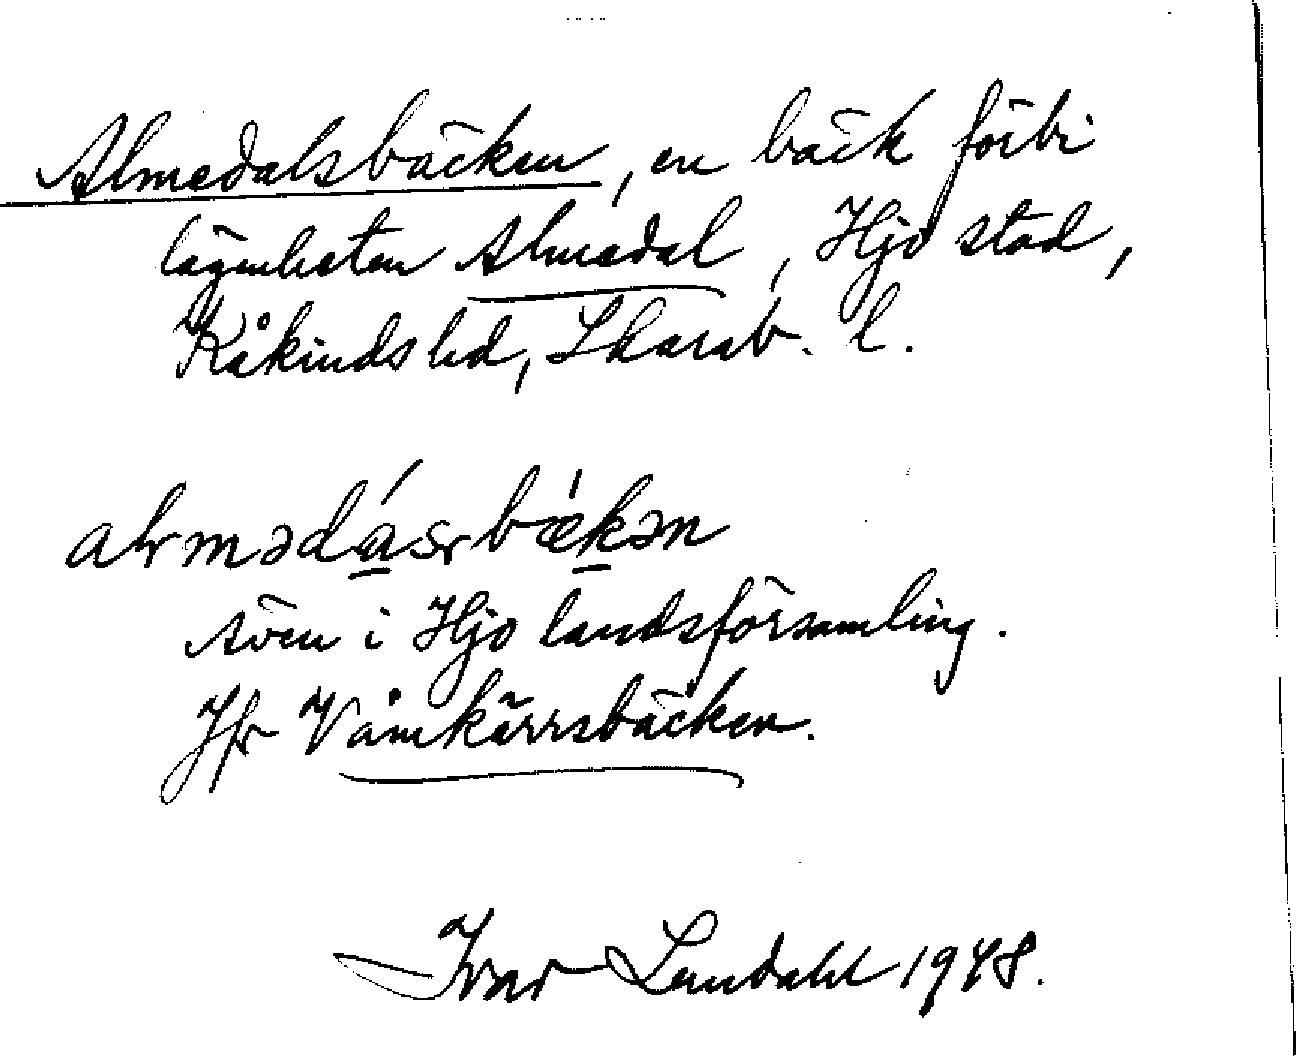 Almedalsbäcken, en bäck förbi
lägenheten Almedal, Hjo stad,
Kåkinds hd, Skarab. l.
almədásbǽkən
även i Hjo landsförsamling.
Jfr Våmkärrsbäcken.
Ivar Lundahl 1948.